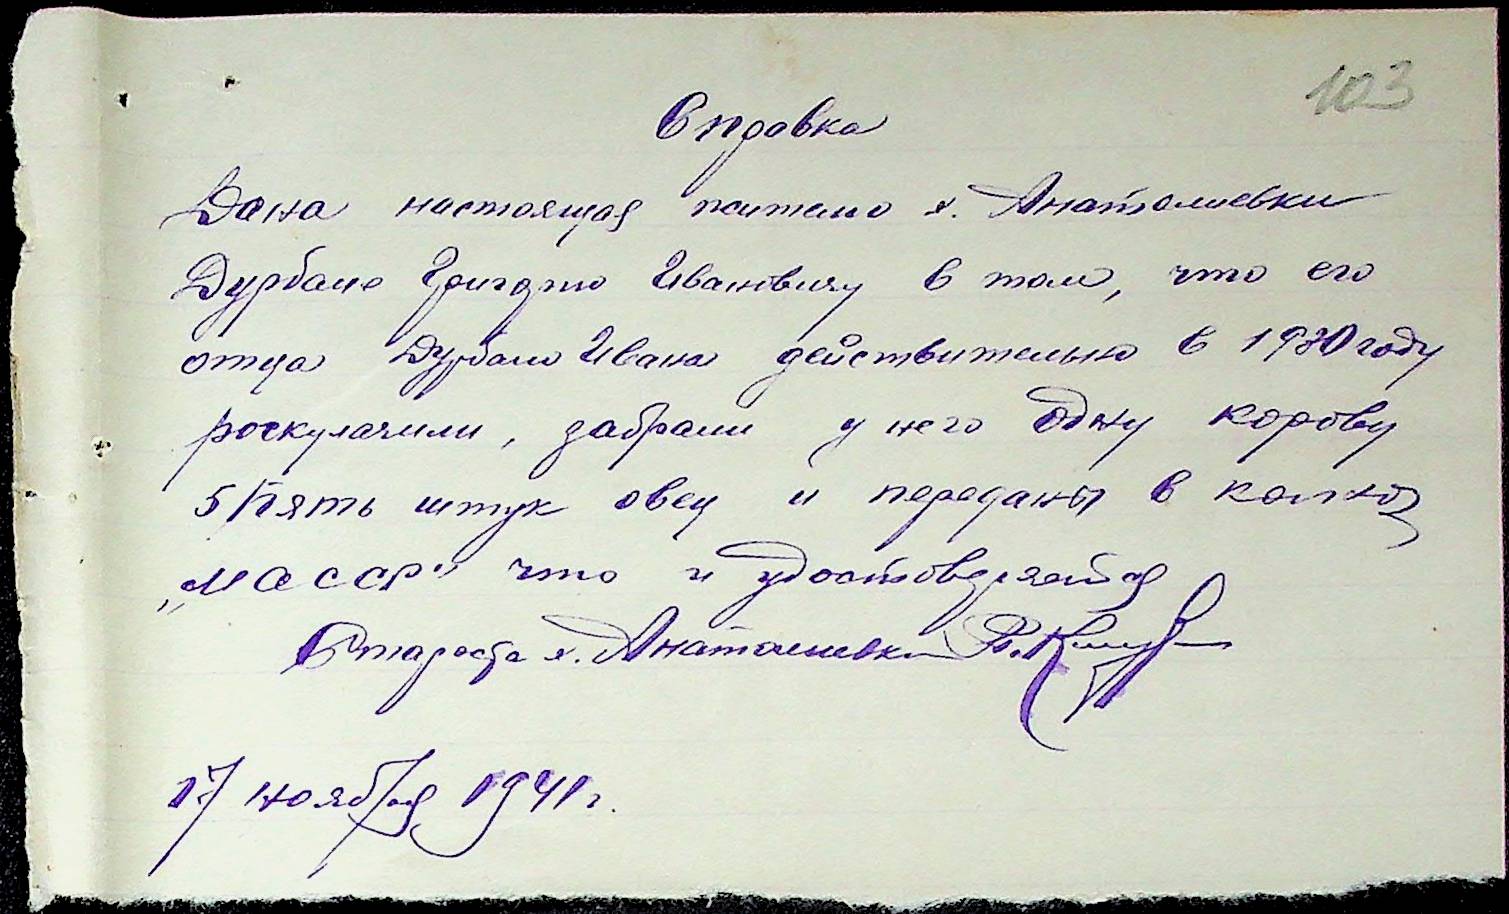 103
Справка
Дана настоящая жителю х. Анатолиевки
Дурбало Григорию Ивановичу в том, что его
отца Дурбало Ивана действительно в 1930 году
роскулачили, забрали у него одну корову
5/пять штук овец и переданы в колхоз
„МАССР" что и удостоверяется
Староста х. Анатолиевки
17 ноября 1941 г.